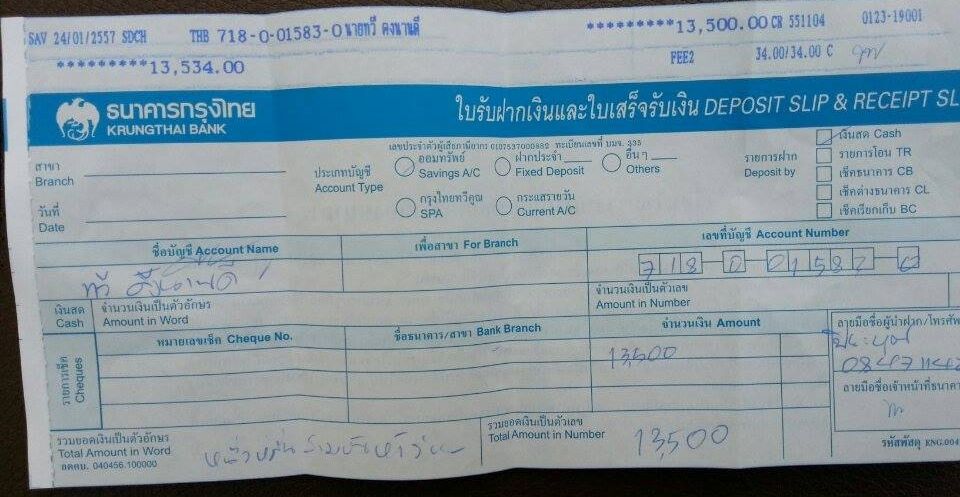 SAV 24/01/2557 SDCH THB 718-0-01583-0 นายทวี คงนานดี *********13,500.00 CR 551104 0123-19001
*********13,534.00 FEE2 34.00/34.00 C
ธนาคารกรุงไทย
KRUNGTHAI BANK
ใบรับฝากเงินและใบเสร็จรับเงิน DEPOSIT SLIP & RECEIPT SL
เลขประจำตัวผู้เสียภาษีอากร 0107537000882 ทะเบียนเลขที่ บมจ. 335
สาขา
Branch
วันที่
Date
ประเภทบัญชี
Account Type
ออมทรัพย์
Savings A/C
ฝากประจำ
Fixed Deposit
อื่น ๆ
Others
กรุงไทยทวีคูณ
SPA
กระแสรายวัน
Current A/C
รายการฝาก
Deposit by
เงินสด Cash
รายการโอน TR
เช็คธนาคาร CB
เช็คต่างธนาคาร CL
เช็คเรียกเก็บ BC
ชื่อบัญชี Account Name
เพื่อสาขา For Branch
เลขที่บัญชี Account Number
ทวี
718 0 01583 0
เงินสด
Cash
จำนวนเงินเป็นตัวอักษร
Amount in Word
จำนวนเงินเป็นตัวเลข
Amount in Number
รายการเช็ค
Cheques
หมายเลขเช็ค Cheque No.
ชื่อธนาคาร/สาขา Bank Branch
จำนวนเงิน Amount
13,500
ลายมือชื่อผู้นำฝาก/โทรศัพ
ลายมือชื่อเจ้าหน้าที่ธนาคา
รวมยอดเงินเป็นตัวอักษร
Total Amount in Word
หนึ่งหมื่นสามพันห้าร้อย
รวมยอดเงินเป็นตัวเลข
Total Amount in Number
13,500
ลดคบ. 040456.100000
รหัสพัสดุ KNG.004